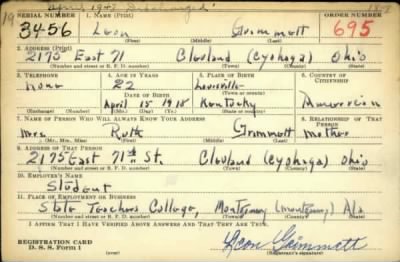 April 1943 Discharged
SERIAL NUMBER 1. NAME (Print) ORDER NUMBER
3456 Leon Grimmett 695
(First) (Middle) (Last)
2. ADDRESS (Print)
2175 East 71 Clevland (Cyohoga) Ohio
(Number and street or R. F. D. number) (Town) (County) (State)
3. TELEPHONE 4. AGE IN YEARS 5. PLACE OF BIRTH 6. COUNTRY OF CITIZENSHIP
None 22 Louisville
(Town or county)
DATE OF BIRTH
April 15 1918 Kentucky American
(Exchange) (Number) (Mo.) (Day) (Yr.) (State or country)
7. NAME OF PERSON WHO WILL ALWAYS KNOW YOUR ADDRESS 8. RELATIONSHIP OF THAT PERSON
Mrs. Ruth Grimmett Mother
(Mr., Mrs., Miss) (First) (Middle) (Last)
9. ADDRESS OF THAT PERSON
2175 East 71st St. Clevland (Cyohoga) Ohio
(Number and street or R. F. D. number) (Town) (County) (State)
10. EMPLOYER'S NAME
Student
11. PLACE OF EMPLOYMENT OR BUSINESS
State Teachers College, Montgomery (Montgomery) Ala
(Number and street or R. F. D. number) (Town) (County) (State)
I AFFIRM THAT I HAVE VERIFIED ABOVE ANSWERS AND THAT THEY ARE TRUE.
REGISTRATION CARD
D. S. S. Form 1
Leon Grimmett
(Registrant's signature)